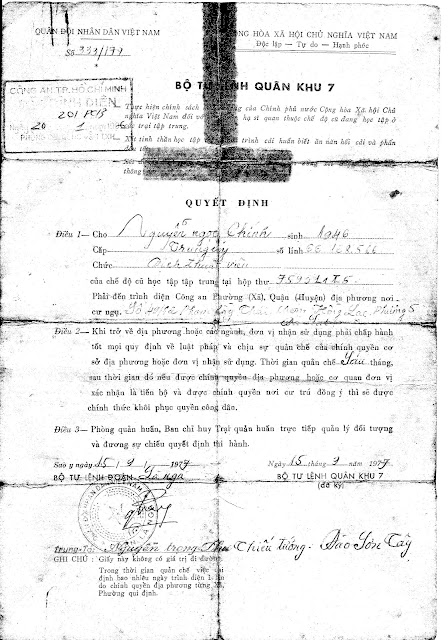 QUÂN ĐỘI NHÂN DÂN VIỆT NAM
CỘNG HÒA XÃ HỘI CHỦ NGHĨA VIỆT NAM
Số 333/179
Độc lập — Tự do — Hạnh phúc
BỘ TƯ LỆNH QUÂN KHU 7
CÔNG AN TP. HỒ CHÍ MINH
TRÌNH DIỆN
201 PCB
20 1
Thực hiện chính sách của Chính phủ nước Cộng hòa Xã hội Chủ
nghĩa Việt Nam đối với hạ sĩ quan thuộc chế độ cũ đang học tập ở
các trại tập trung.
Xét tinh thần học tập trình cải huấn biết ăn năn hối cải và phấn
QUYẾT ĐỊNH
Điều 1— Cho Nguyễn ngọc Chính sinh 1946
Cấp Trung úy số lính 66 168 566
Chức Dịch thuật viên
của chế độ cũ học tập tập trung tại hộp thư 7590
Phải đến trình diện Công an Phường (Xã), Quận (Huyện) địa phương nơi
cư ngụ. Số Phường 5
Điều 2— Khi trở về địa phương hoặc các ngành, đơn vị nhận sử dụng phải chấp hành
tốt mọi quy định về luật pháp và chịu sự quản chế của chính quyền cơ
sở địa phương hoặc đơn vị nhận sử dụng. Thời gian quản chế Sáu tháng,
sau thời gian đó nếu được chính quyền địa phương hoặc cơ quan đơn vị
xác nhận là tiến bộ và được chính quyền nơi cư trú đồng ý thì sẽ được
chính thức khôi phục quyền công dân.
Điều 3— Phòng quân huấn, Ban chỉ huy Trại quân huấn trực tiếp quản lý đối tượng
và đương sự chiếu quyết định thi hành.
Sao y ngày 15 9 1977
Ngày 15 tháng 9 năm 1977
BỘ TƯ LỆNH ĐOÀN
BỘ TƯ LỆNH QUÂN KHU 7
(đã ký)
Trung Tá: Nguyễn trọng
Thiếu tướng - Đào Sơn Tây
GHI CHÚ : Giấy này không có giá trị đi đường.
Trong thời gian quản chế việc
định bao nhiêu ngày trình diện 1 lần
do chính quyền địa phương từng Xã,
Phường qui định.